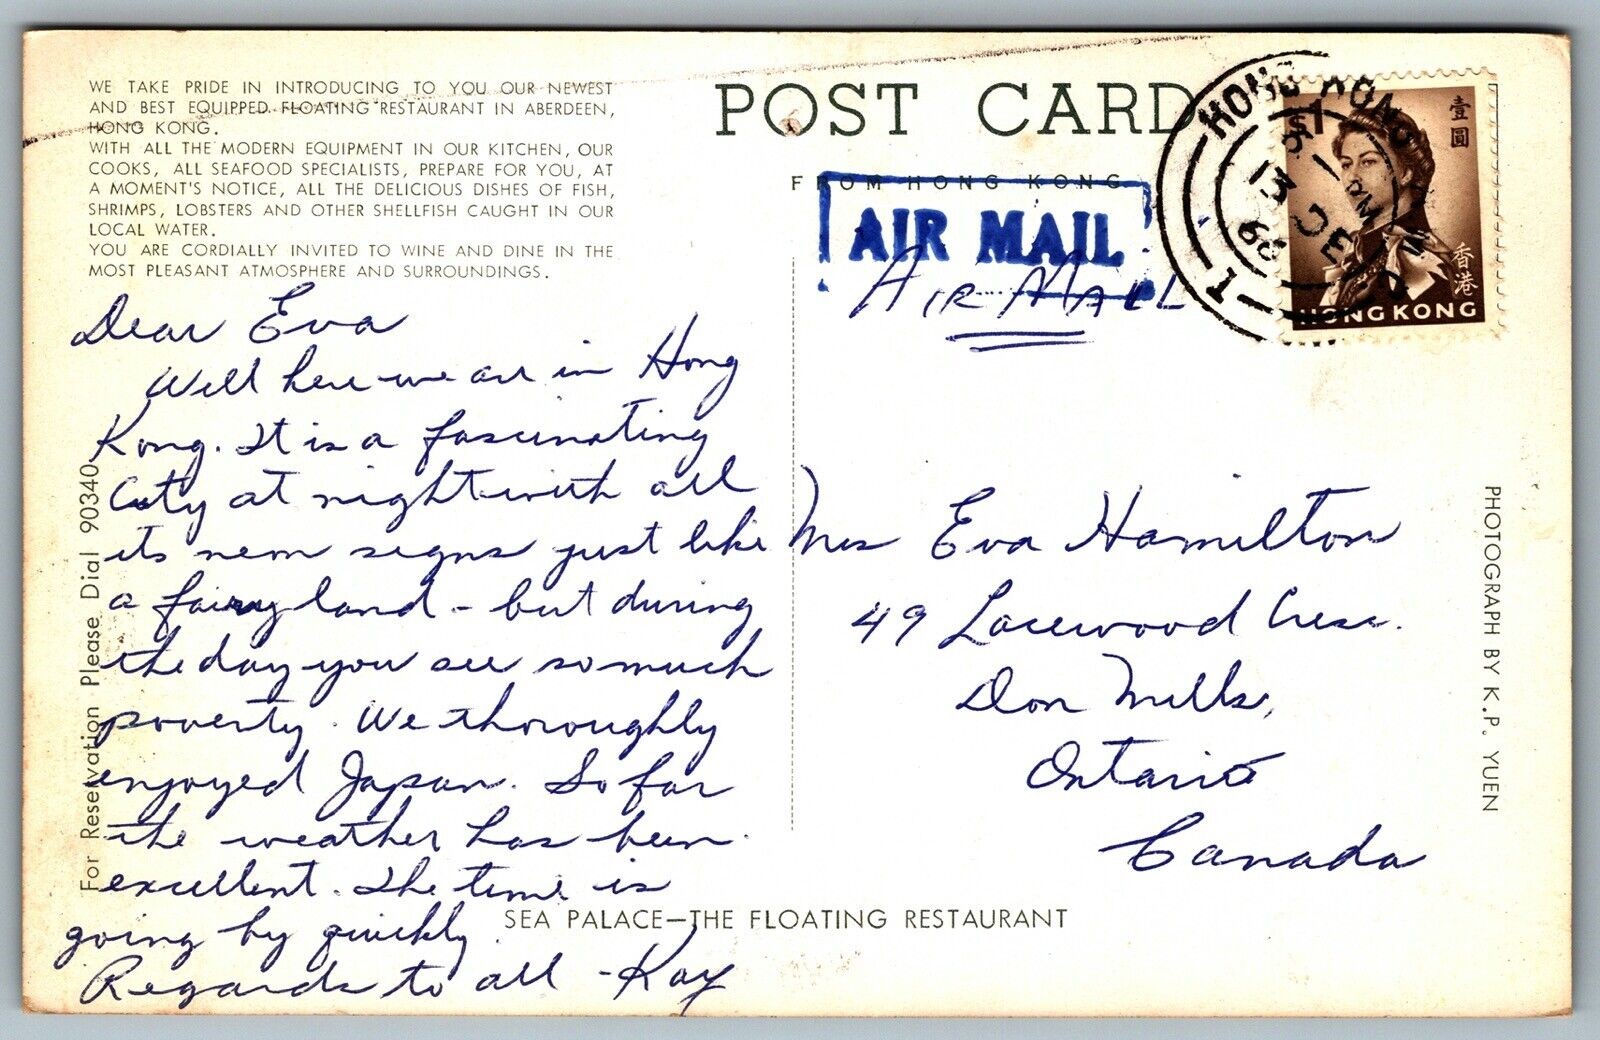 WE TAKE PRIDE IN INTRODUCING TO YOU OUR NEWEST
AND BEST EQUIPPED FLOATING RESTAURANT IN ABERDEEN,
HONG KONG.
WITH ALL THE MODERN EQUIPMENT IN OUR KITCHEN, OUR
COOKS, ALL SEAFOOD SPECIALISTS, PREPARE FOR YOU, AT
A MOMENT'S NOTICE, ALL THE DELICIOUS DISHES OF FISH,
SHRIMPS, LOBSTERS AND OTHER SHELLFISH CAUGHT IN OUR
LOCAL WATER.
YOU ARE CORDIALLY INVITED TO WINE AND DINE IN THE
MOST PLEASANT ATMOSPHERE AND SURROUNDINGS.
Dear Eva
Well here we are in Hong
Kong. It is a fascinating
City at night with all
its neon signs just like
a fairy land - but during
the day you see so much
poverty. We thoroughly
enjoyed Japan. So far
the weather has been
excellent. The time is
going by quickly.
Regards to all - Kay
For Reservation Please Dial 90340
POST CARD
FROM HONG KONG
AIR MAIL
AIR MAIL
HONG KONG
1
PM
13
DE
66
$1
壹圓
香港
HONG KONG
Mrs Eva Hamilton
49 Lacewood Cresc.
Don Mills,
Ontario
Canada
PHOTOGRAPH BY K.P. YUEN
SEA PALACE—THE FLOATING RESTAURANT